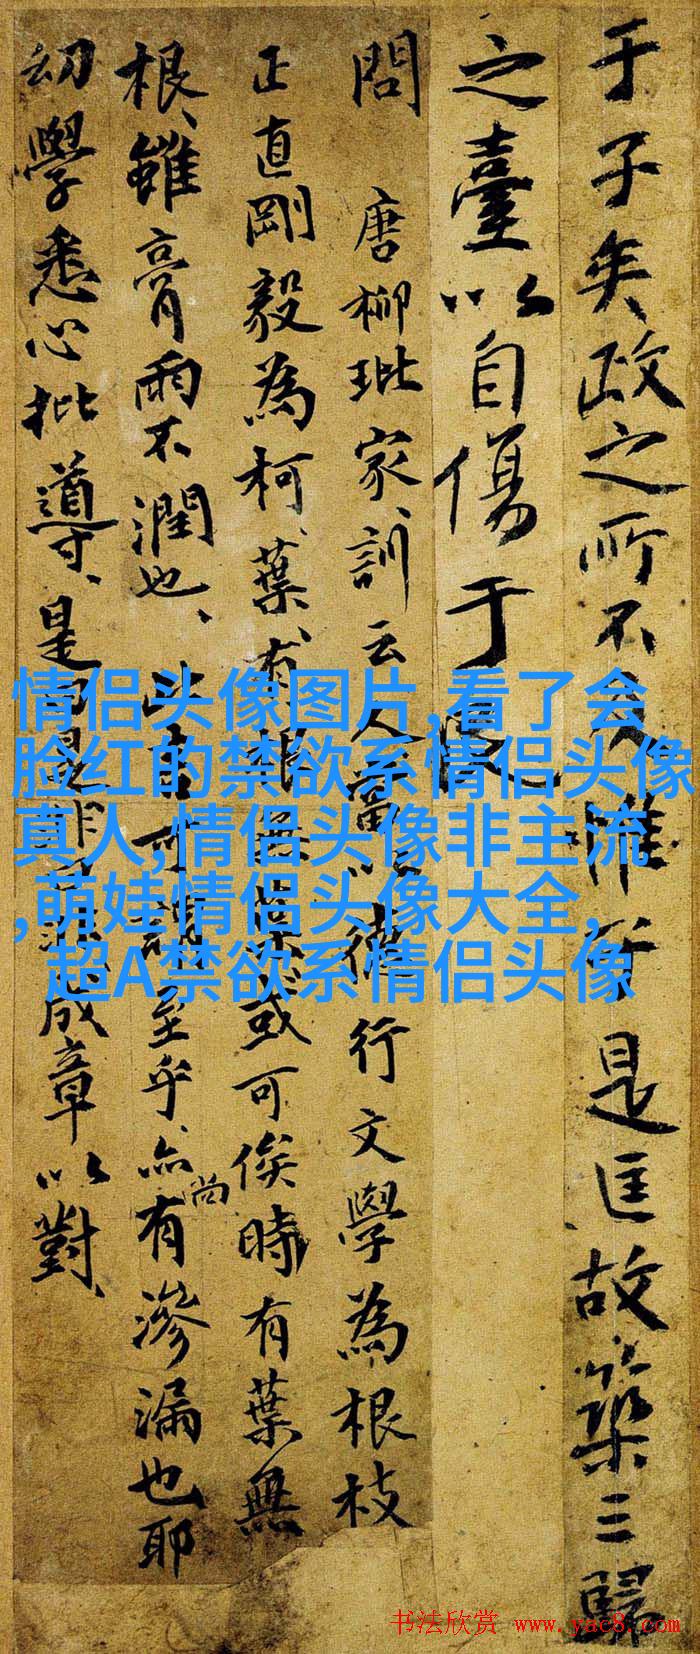 于子矣政之所不及惟管是匡故築三歸
之臺以自傷于民
問 唐柳玭家訓云人當以德行文學為根枝
正直剛毅為柯葉有根無葉或可俟時有葉無
根雖膏雨不潤也此言可謂至乎亦尚有滲漏也耶
幼學悉心批導是即是非成章以對
情侣头像图片,看了会
脸红的禁欲系情侣头像
真人,情侣头像非主流
,萌娃情侣头像大全,
超A禁欲系情侣头像
书法欣赏 www.yac8.com